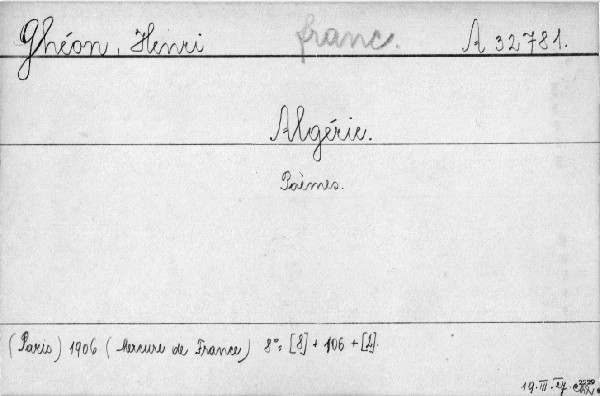 Ghéon, Henri franc. A 32781.
Algérie.
Poèmes.
(Paris) 1906 (Mercure de France) 8°: [8] + 106 + [2].
19. III. 27.